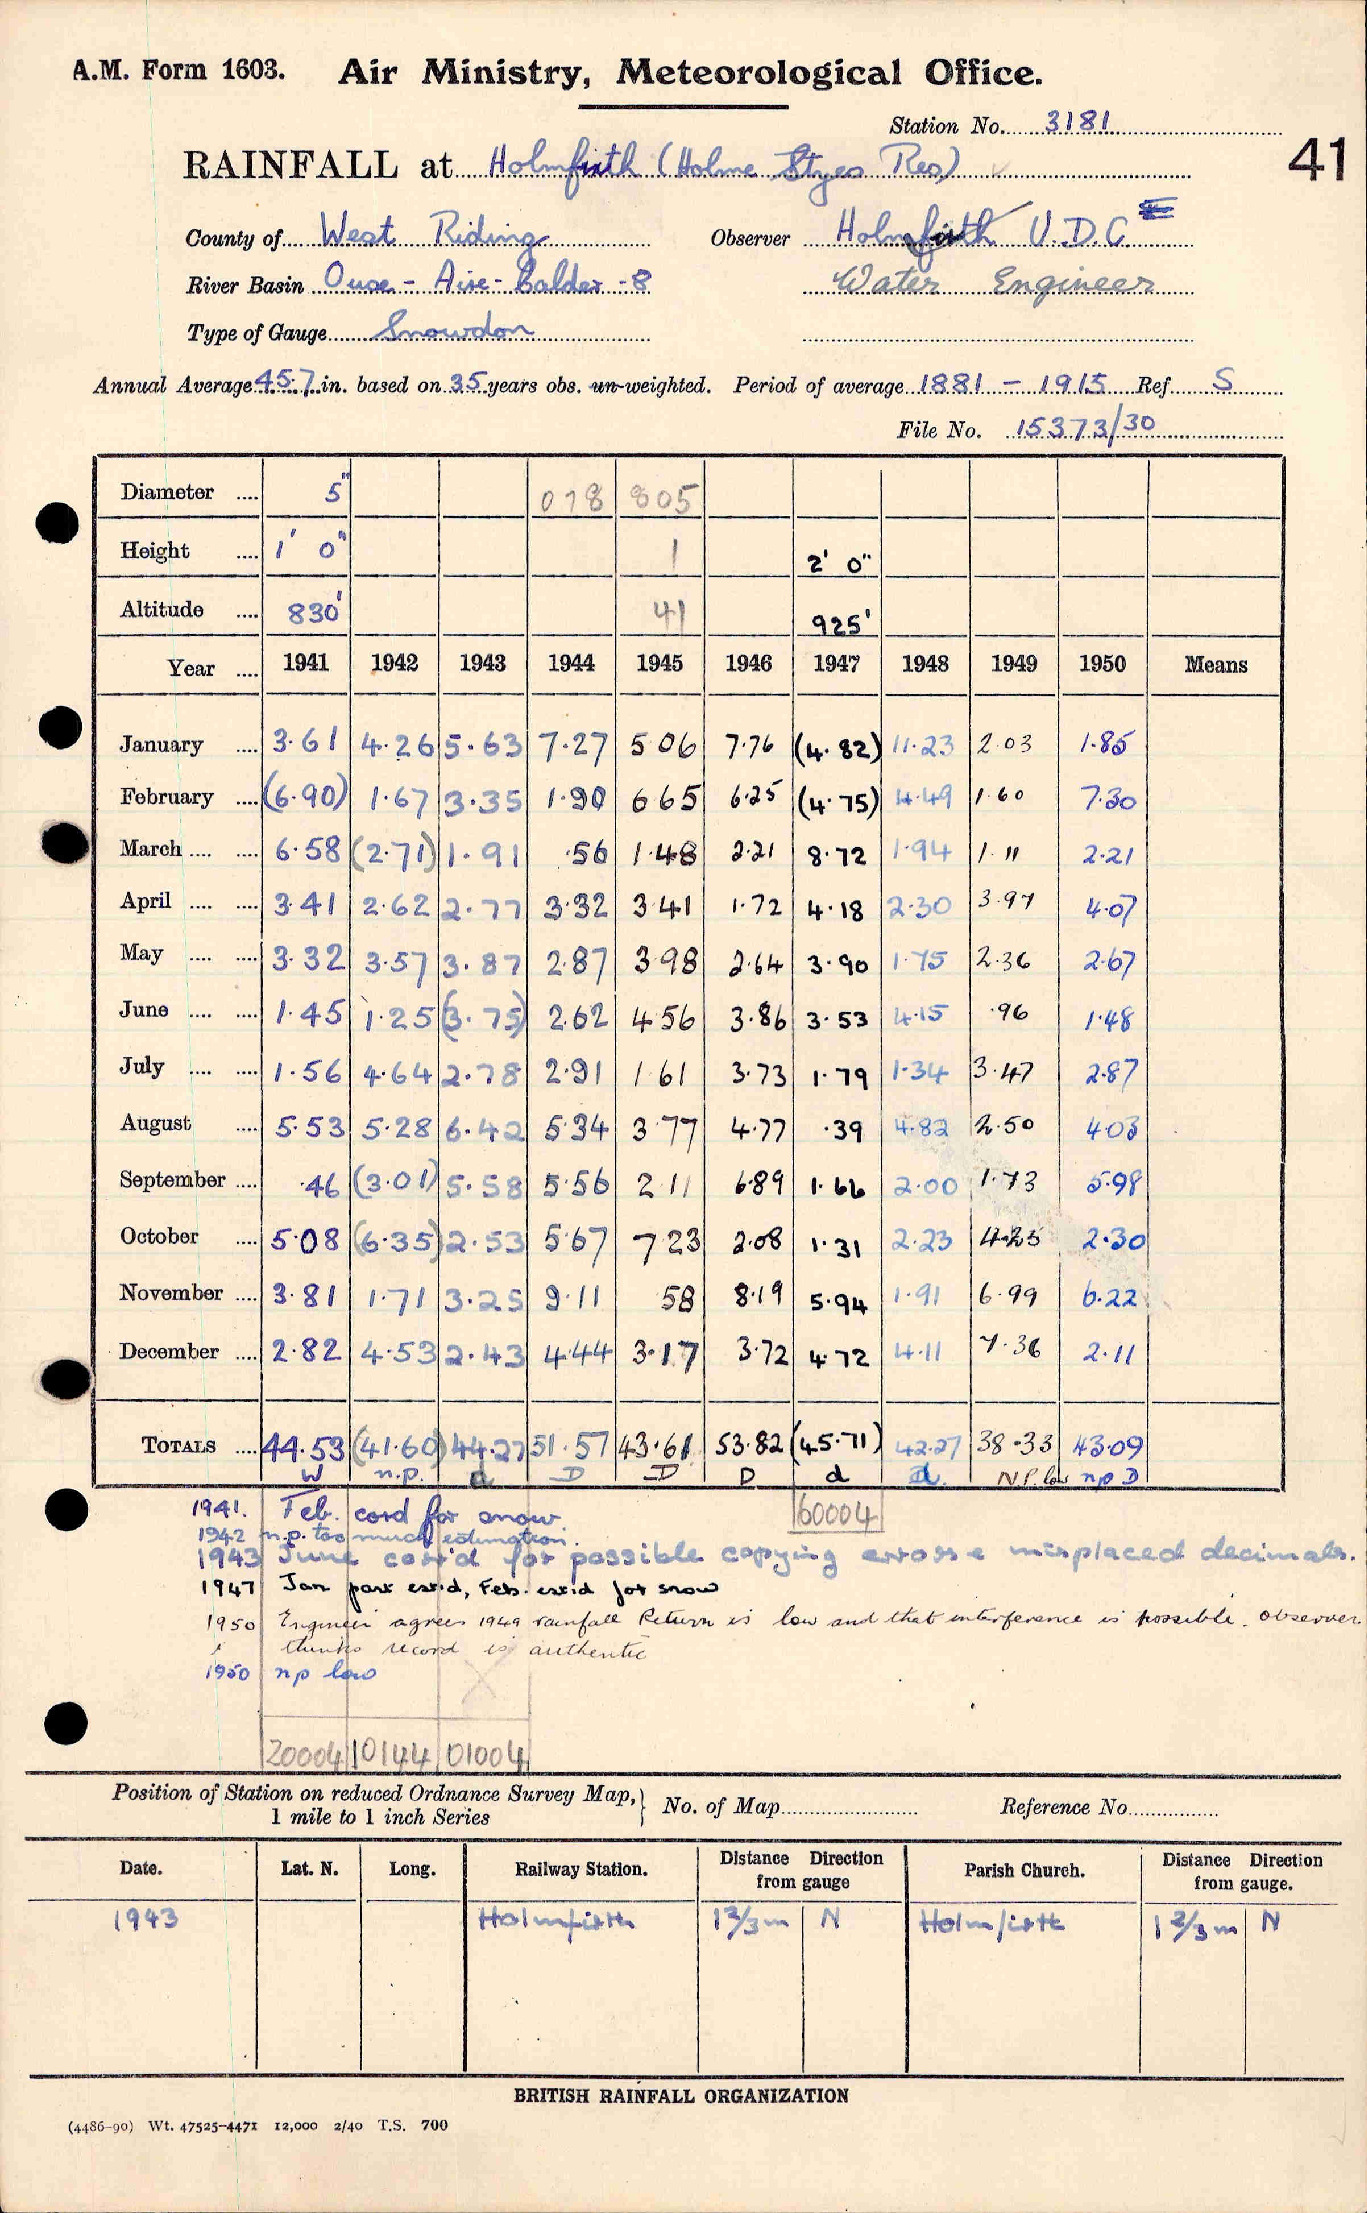 A.M. Form 1603. Air Ministry, Meteorological Office.
Station No. 3181
41
RAINFALL at Holmfirth (Holme Styes Res)
County of West Riding Observer Holmfirth U.D.C
River Basin Ouse - Aire - Calder - 8 Water Engineer
Type of Gauge Snowdon
Annual Average 45.7 in. based on 35 years obs. un-weighted. Period of average 1881 - 1915 Ref. S
File No. 15373/30
Diameter .... 5" 078 805
Height .... 1' 0" 1 2' 0"
Altitude .... 830' 41 925'
Year .... 1941 1942 1943 1944 1945 1946 1947 1948 1949 1950 Means
January .... 3.61 4.26 5.63 7.27 5 06 7.76 (4.82) 11.23 2.03 1.85
February .... (6.90) 1.67 3.35 1.90 6 65 6.25 (4.75) 4.49 1.60 7.30
March .... .... 6.58 (2.71) 1.91 .56 1.48 2.21 8.72 1.94 1.11 2.21
April .... .... 3.41 2.62 2.77 3.32 3 41 1.72 4.18 2.30 3.97 4.07
May .... .... 3.32 3.57 3.87 2.87 3 98 2.64 3.90 1.75 2.36 2.67
June .... .... 1.45 1.25 (3.75) 2.62 4 56 3.86 3.53 4.15 .96 1.48
July .... .... 1.56 4.64 2.78 2.91 1 61 3.73 1.79 1.34 3.47 2.87
August .... 5.53 5.28 6.42 5.34 3 77 4.77 .39 4.82 2.50 4.03
September .... .46 (3.01) 5.58 5.56 2 11 6.89 1.66 2.00 1.73 5.98
October .... 5.08 (6.35) 2.53 5.67 7 23 2.08 1.31 2.23 4.25 2.30
November .... 3.81 1.71 3.25 9.11 58 8.19 5.94 1.91 6.99 6.22
December .... 2.82 4.53 2.43 4.44 3.17 3.72 4.72 4.11 7.36 2.11
TOTALS .... 44.53 (41.60) 44.27 51.57 43.61 53.82 (45.71) 42.27 38.33 43.09
W n.p. d D D D d d. N.P. low np D
1941. Feb. cord for snow 60004
1942 n.p. too much estimation.
1943 June corr'd for possible copying errors e misplaced decimals.
1947 Jan part est'd, Feb. est'd for snow
1950 Engineer agrees 1949 rainfall Return is low and that interference is possible. observer
thinks record is authentic
1950 np low
20004 10144 01004
Position of Station on reduced Ordnance Survey Map, } No. of Map Reference No.
1 mile to 1 inch Series
Date. Lat. N. Long. Railway Station. Distance Direction from gauge Parish Church. Distance Direction from gauge.
1943 Holmfirth 1 2/3 m N Holmfirth 1 2/3 m N
BRITISH RAINFALL ORGANIZATION
(4486-90) Wt. 47525-4471 12,000 2/40 T.S. 700